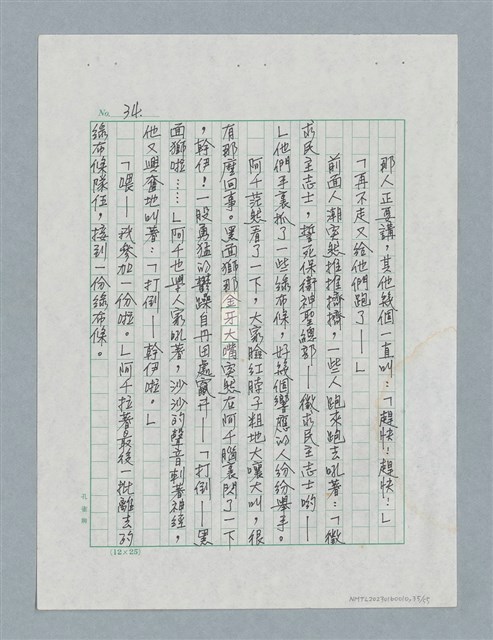 No. 34.
那人正要講，其他幾個一直叫：「趕快！趕快！」
「再不走又給他們跑了——」
前面人潮突然推推擠擠，一些人跑來跑去吼著：「徵
求民主志士，誓死保衛神聖總部——徵求民主志士喲——
」他們手裏抓了一些綠布條，好幾個響應的人紛紛舉手。
阿千茫然看了一下，大家臉紅脖子粗地大嚷大叫，很
有那麼回事。黑面獅那金牙大嘴突然在阿千腦裏閃了一下
，幹伊！一股勇猛的鬱躁自丹田處竄升——「打倒——黑
面獅啦……」阿千也學人家吼著，沙沙的聲音刺著神經，
他又興奮地叫著：「打倒——幹伊啦。」
「喂——我參加一份啦。」阿千拉著最後一批離去的
綠布條隊伍，接到一份綠布條。
孔雀牌
(12×25)